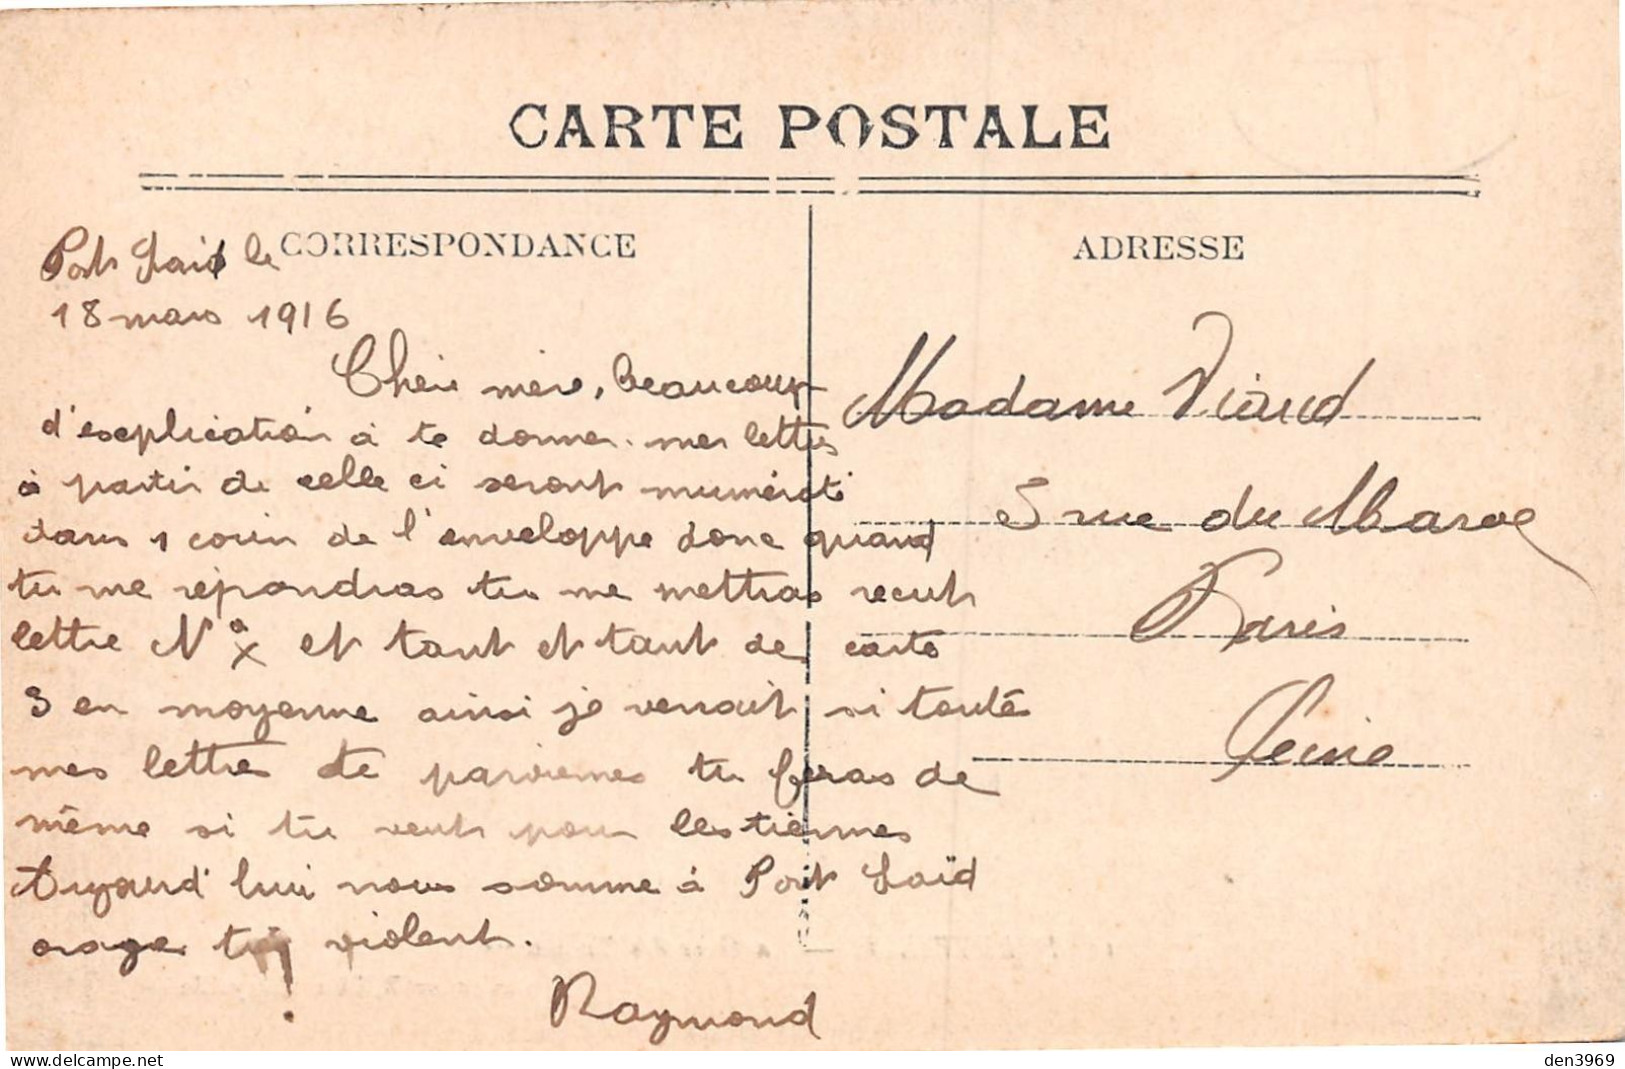 CARTE POSTALE
CORRESPONDANCE
ADRESSE
Port Said le
18 mars 1916
Cheri mère, beaucoup
d'explication à te donner. mes lettres
à partir de celle ci seront numéroté
dans 1 coin de l'enveloppe donc quand
tu me répondras tu me mettras recut
lettre N° x et tant et tant de carte
3 en moyenne ainsi je verrait si touté
mes lettres te parviennes tu feras de
même si tu veut pour les tiennes
Aujourd'hui nous somme à Port Saïd
orage violent.
Raymond
Madame Viaud
5 rue du Maroc
Paris
Seine
den3969